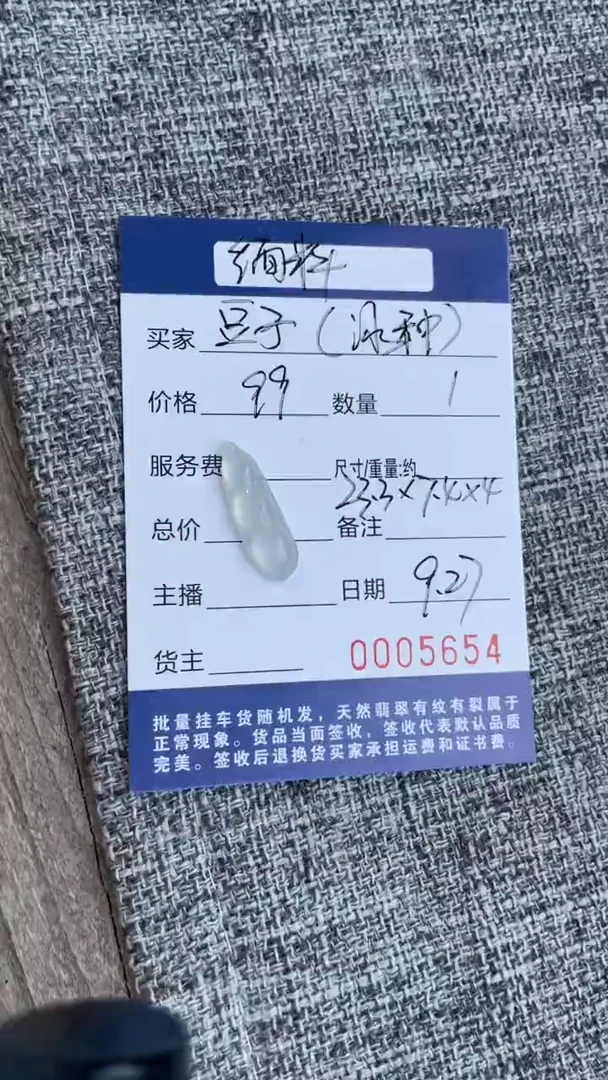 缅料
买家 豆子（冰种）
价格 99 数量 1
服务费 尺寸/重量:约
23.3×7.4×4
总价 备注
主播 日期 9.27
货主 0005654
批量挂车货随机发，天然翡翠有纹有裂属于
正常现象。货品当面签收，签收代表默认品质
完美。签收后退换货买家承担运费和证书费。